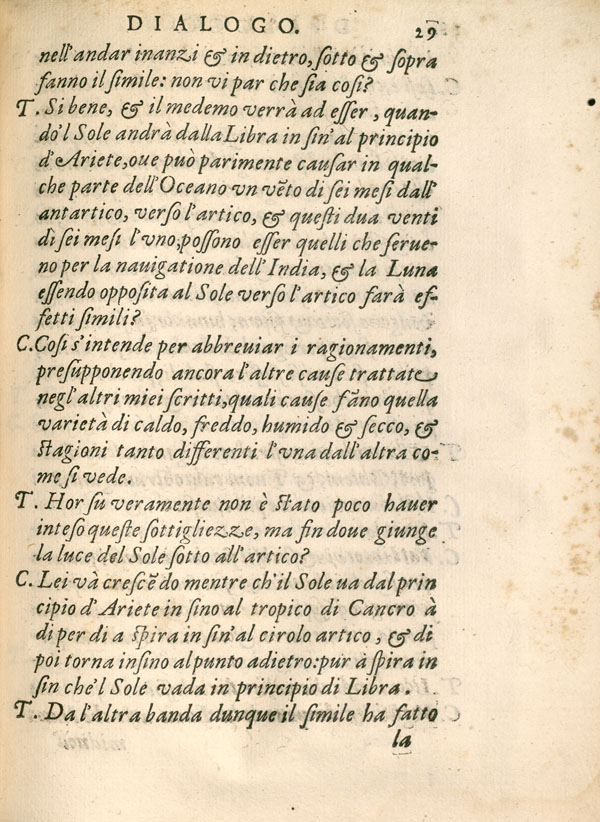 DIALOGO. 29
nell'andar inanzi & in dietro, sotto & sopra
fanno il simile: non vi par che sia cosi?
T. Si bene, & il medemo verrà ad esser, quan-
do'l Sole andrà dalla Libra in sin'al principio
d'Ariete, oue può parimente causar in qual-
che parte dell'Oceano vn vẽto di sei mesi dall'
antartico, verso l'artico, & questi dua venti
di sei mesi l'vno, possono esser quelli che serue-
no per la nauigatione dell'India, & la Luna
essendo opposita al Sole verso l'artico farà ef-
fetti simili?
C. Cosi s'intende per abbreuiar i ragionamenti,
presupponendo ancora l'altre cause trattate
negl'altri miei scritti, quali cause fãno quella
varietà di caldo, freddo, humido & secco, &
stagioni tanto differenti l'vna dall'altra co-
me si vede.
T. Hor sù veramente non è stato poco hauer
inteso queste sottigliezze, ma fin doue giunge
la luce del Sole sotto all'artico?
C. Lei và crescẽdo mentre ch'il Sole ua dal prin
cipio d'Ariete in sino al tropico di Cancro à
di per di a spira in sin'al cirolo artico, & di
poi torna insino al punto adietro: pur à spira in
sin che'l Sole vada in principio di Libra.
T. Da l'altra banda dunque il simile ha fatto
la